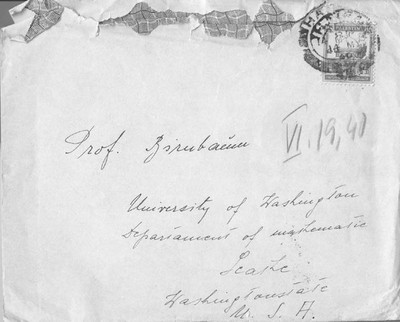 Prof. Birnbaum
VI. 19, 40
University of Washington
Departament of mathematic
Seatle
Washingtonstate
U. S. A.